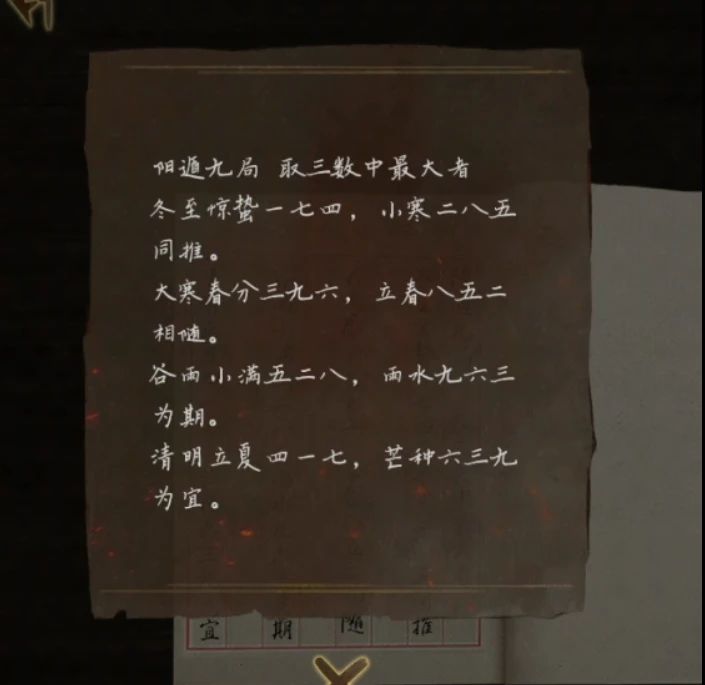 阳遁九局 取三数中最大者
冬至惊蛰一七四，小寒二八五
同推。
大寒春分三九六，立春八五二
相随。
谷雨小满五二八，雨水九六三
为期。
清明立夏四一七，芒种六三九
为宜。
宜 期 随 推